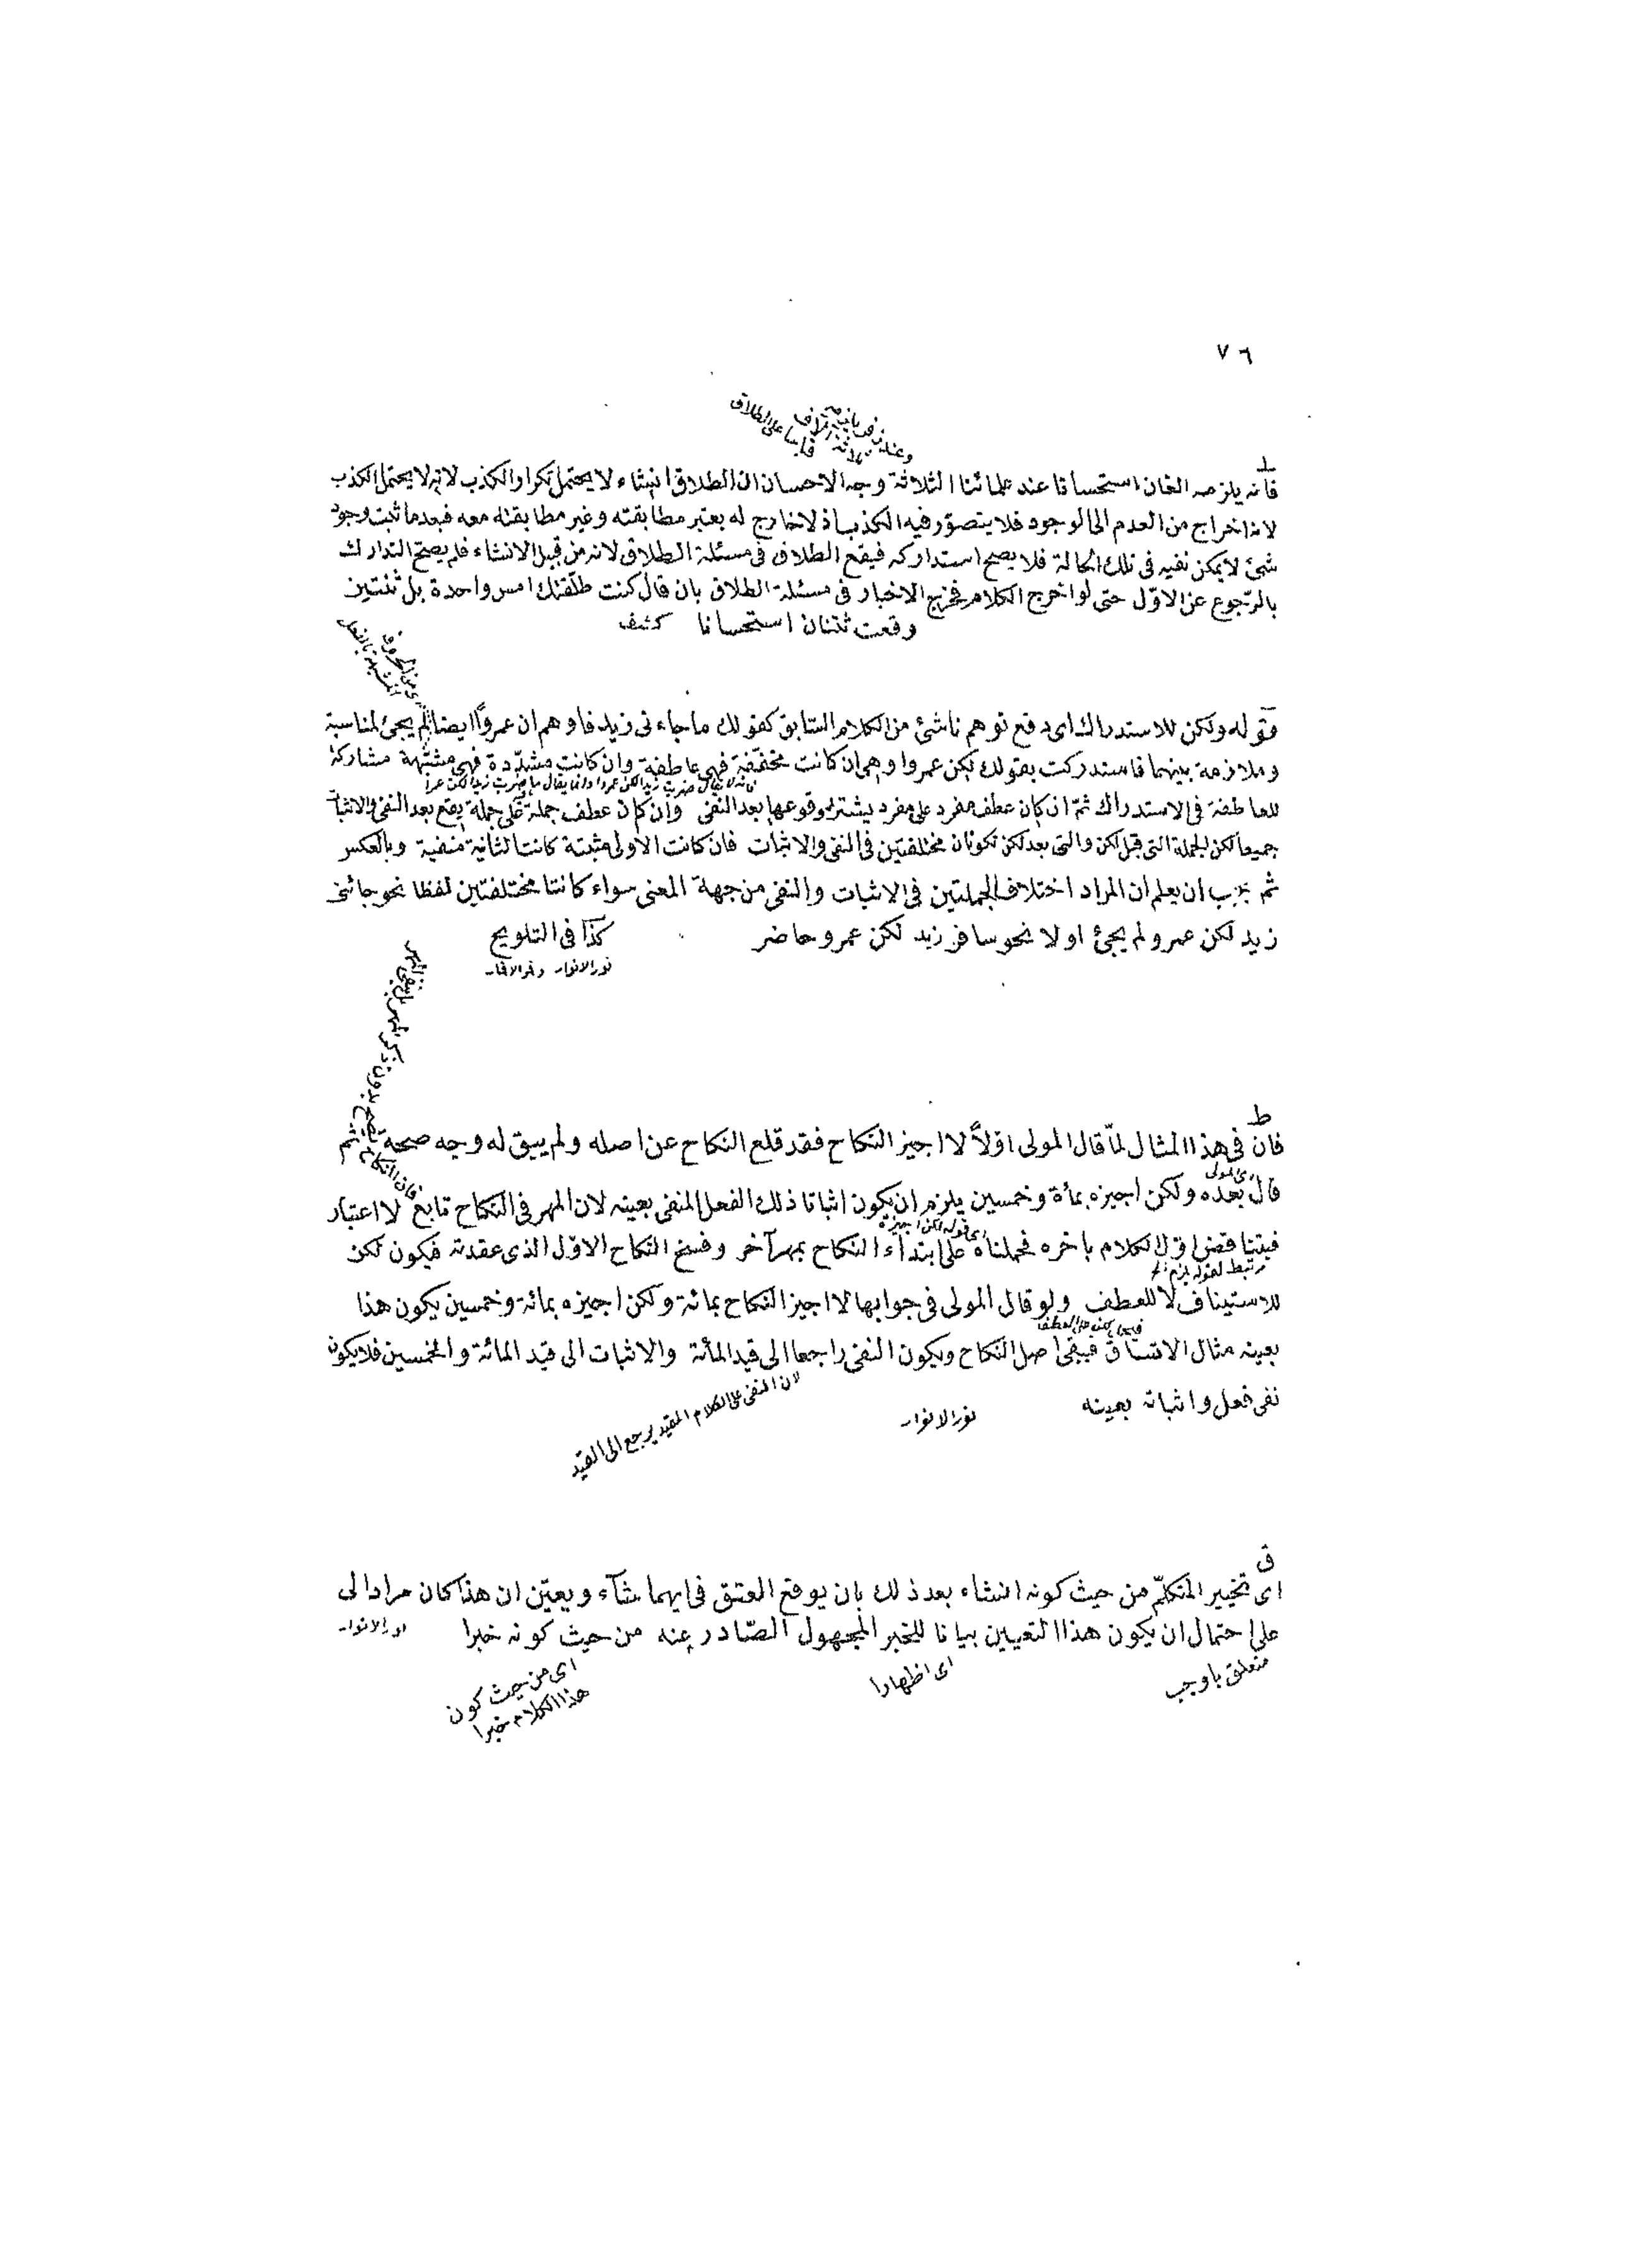 ٧٦
وعند زفر يلزمه ثلاثة آلاف قياسا على الطلاق
فانه يلزمه الفان استحسانا عند علمائنا الثلاثة وجه الاحسان ان الطلاق انشاء لا يحتمل تكرا والكذب لانه لا يحتمل الكذب
لانه اخراج من العدم الى الوجود فلا يتصوّر فيه الكذب اذ لا خارج له يعتبر مطابقته وغير مطابقته معه فبعد ما ثبت وجود
شئ لا يمكن نفيه فى تلك الحالة فلا يصح استدراكه فيقع الطلاق فى مسئلة الطلاق لانه من قبيل الانشاء فلم يصح التدارك
بالرّجوع عن الاوّل حتى لو اخرج الكلام مخرج الاخبار فى مسئلة الطلاق بان قال كنت طلّقتك امس واحدة بل ثنتين
وقعت ثنتان استحسانا كشف
اى من الحروف المشبهة بالفعل
قوله ولكن للاستدراك اى دفع توهم ناشئ من الكلام السّابق كقولك ما جاءنى زيد فاوهم ان عمروًا ايضا لم يجئ لمناسبة
وملازمة بينهما فاستدركت بقولك لكن عمروا وهى ان كانت مخفّفة فهى عاطفة وان كانت مشدّدة فهى مشبّهة مشاركة
فانه لا يقال ضربت زيدا لكن عمروا وانما يقال ما ضربت زيدا لكن عمرا
للعاطفة فى الاستدراك ثمّ ان كان عطف مفرد على مفرد يشترط وقوعها بعد النفى وان كان عطف جملة على جملة يقع بعد النفى والاثبات
جميعا لكن الجملة التى قبل لكن والتى بعد لكن تكونان مختلفتين فى النفى والاثبات فان كانت الاولى مثبتة كانت الثانية منفية وبالعكس
ثم يجب ان يعلم ان المراد اختلاف الجملتين فى الاثبات والنفى من جهة المعنى سواء كانتا مختلفتين لفظا نحو جائنى
زيد لكن عمرو لم يجئ او لا نحو سافر زيد لكن عمرو حاضر كذا فى التلويح
نور الانوار وقمر الاقمار
ط
فان فى هذا المثال لمّا قال المولى اوّلاً لا اجيز النكاح فقد قلع النكاح عن اصله ولم يبق له وجه صحة ثم
فان النكاح يصح بدون ذكر المهر بل بنفى المهر
اى المولى
قال بعده ولكن اجيزه بمائة وخمسين يلزم ان يكون اثباتا ذلك الفعل المنفى بعينه لان المهر فى النكاح تابع لا اعتبار
اى قوله لكن اجيزه
فيتناقض اوّل الكلام باخره فحملناه على ابتداء النكاح بمهر آخر وفسخ النكاح الاوّل الذى عقدته فيكون لكن
مرتبط لقوله يلزم
للاستيناف لا للعطف ولو قال المولى فى جوابها لا اجيز النكاح بمائة ولكن اجيزه بمائة وخمسين يكون هذا
بعينه مثال الاتساق فيبقى اصل النكاح ويكون النفى راجعا الى قيد المائة والاثبات الى قيد المائة والخمسين فلا يكون
نفى فعل واثباته بعينه نور الانوار
لان النفى على الكلام المقيد يرجع الى القيد
ق
اى تخيير المتكلّم من حيث كونه انشاء بعد ذلك بان يوقع العتق فى ايهما شآء ويعيّن ان هذا كان مرادا لى
على احتمال ان يكون هذا التعيين بيانا للخبر المجهول الصّادر عنه من حيث كونه خبرا نور الانوار
متعلق باوجب
اى اظهارا
اى من حيث كون
هذا الكلام خبرا